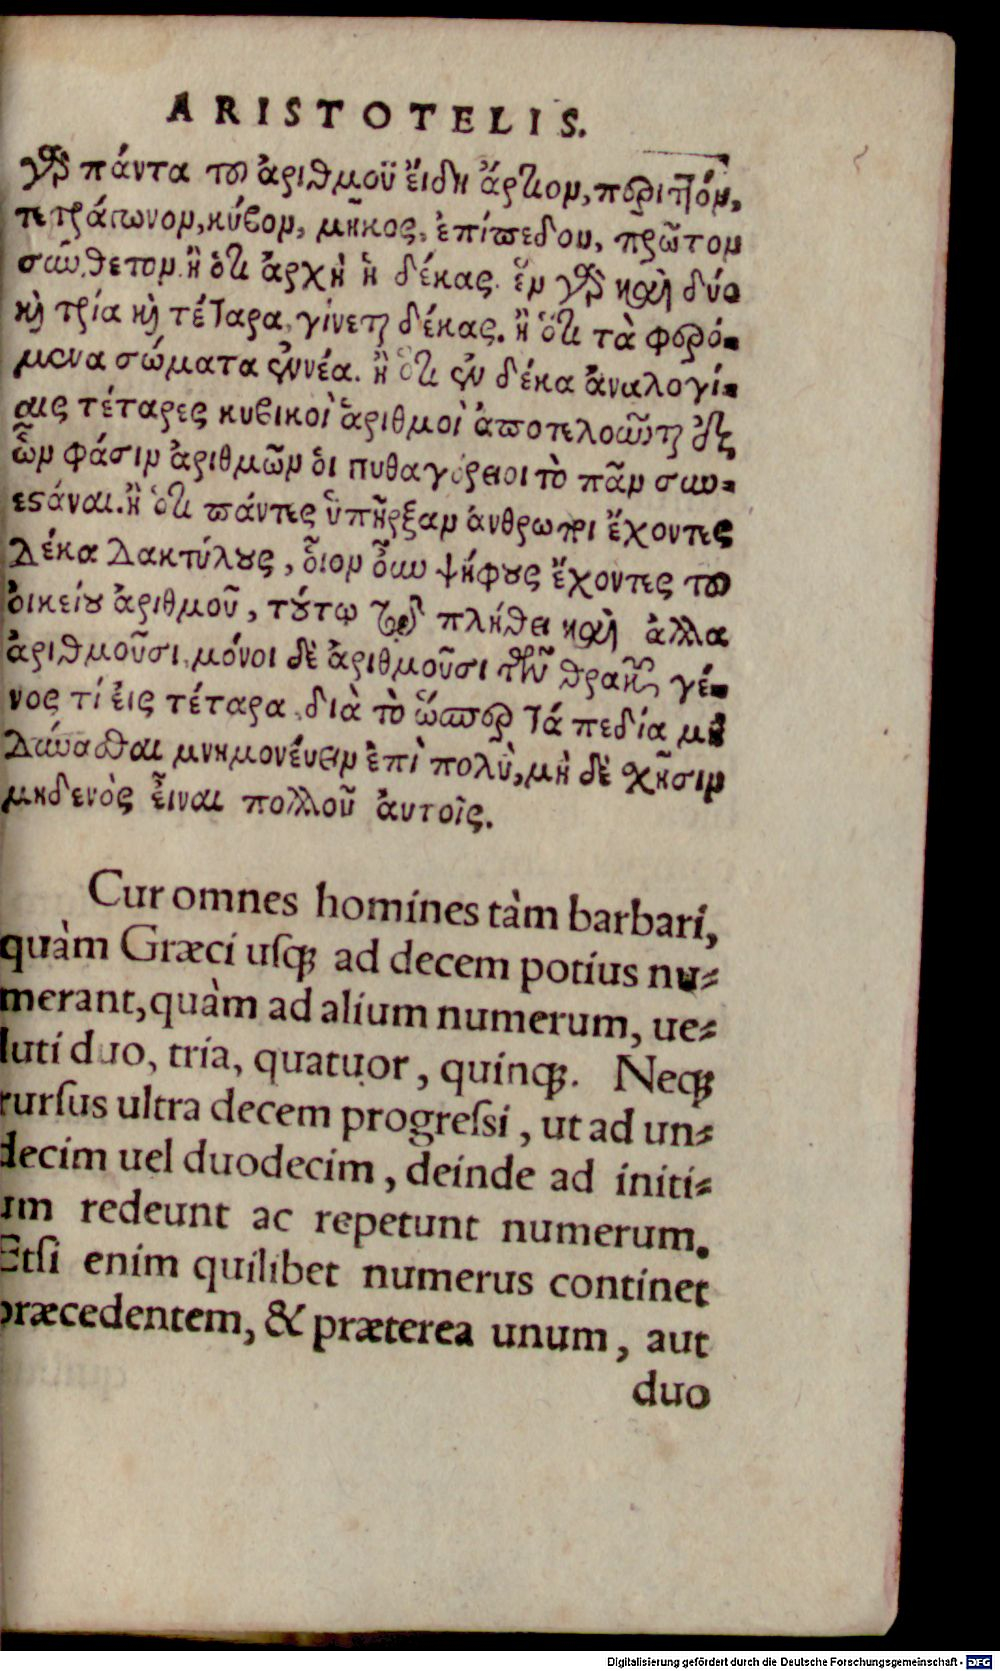 ARISTOTELIS.
γὰρ πάντα τοῦ ἀριθμοῦ ἔιδη ἄρτιον, περιττόν,
τετράγωνον, κύβον, μῆκος, ἐπίπεδον, πρῶτον
σύνθετον. ἢ ὅτι ἀρχὴ ἡ δέκας. ἓν γὰρ καὶ δύο
καὶ τρία καὶ τέταρα, γίνεται δέκας. ἢ ὅτι τὰ φερό-
μενα σώματα ἐννέα. ἢ ὅτι ἐν δέκα ἀναλογί-
αις τέταρες κυβικοὶ ἀριθμοὶ ἀποτελοῦνται ἐξ
ὧν φάσιν ἀριθμῶν ὁι πυθαγόρειοι τὸ πᾶν συν-
εστάναι. ἢ ὅτι πάντες ὑπῆρξαν ἄνθρωποι ἔχοντες
δέκα δακτύλους, οἷον οὖν ψήφους ἔχοντες τοῦ
ὀικείου ἀριθμοῦ, τούτῳ τῷ πλήθει καὶ ἀλλα
ἀριθμοῦσι, μόνοι δὲ ἀριθμοῦσι τῶν θρακῶν γέ-
νος τί ἐις τέταρα, διὰ τὸ ὥσπερ τά πεδία μὴ
δύνασθαι μνημονέυειν ἐπὶ πολὺ, μὴ δὲ χρῆσιν
μηδενὸς ἶειναι πολλοῦ ἀυτοῖς.
Cur omnes homines tàm barbari,
quàm Græci usq; ad decem potius nu-
merant, quàm ad alium numerum, ue-
luti duo, tria, quatuor, quinq;. Neq;
rursus ultra decem progressi, ut ad un-
decim uel duodecim, deinde ad initi-
um redeunt ac repetunt numerum.
Etsi enim quilibet numerus continet
præcedentem, & præterea unum, aut
duo
Digitalisierung gefördert durch die Deutsche Forschungsgemeinschaft - DFG